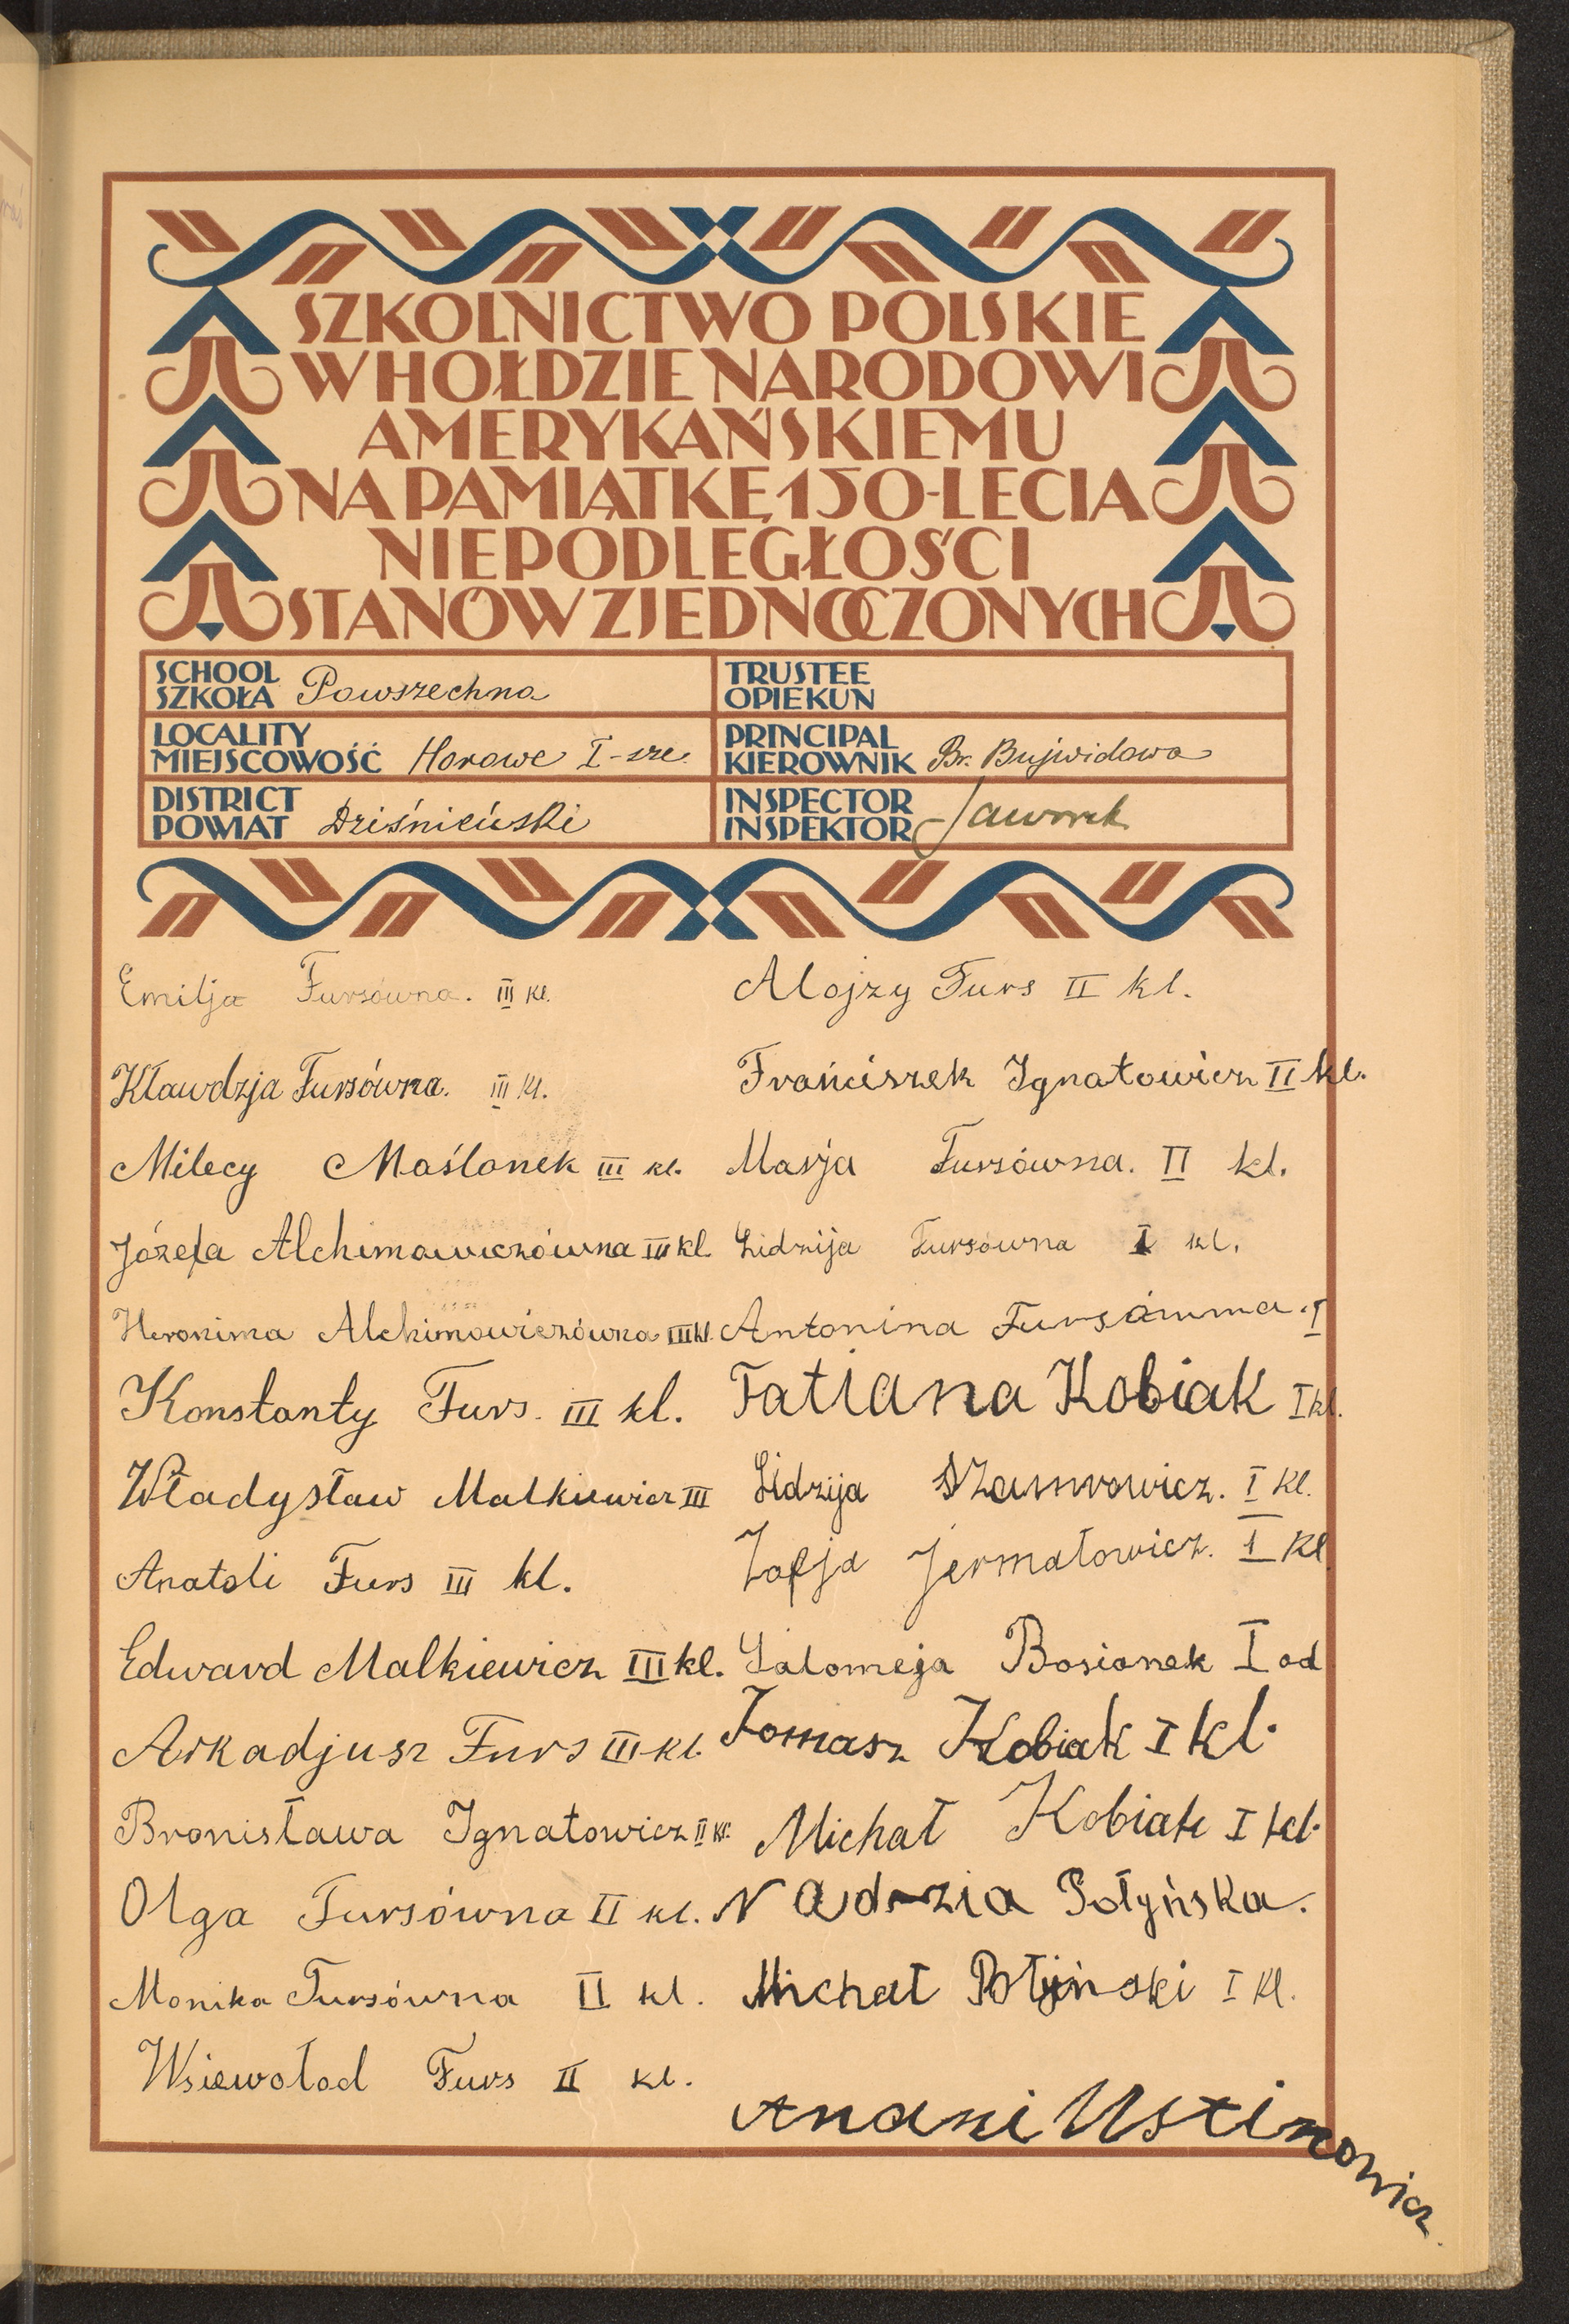 SZKOLNICTWO POLSKIE
W HOŁDZIE NARODOWI
AMERYKAŃSKIEMU
NA PAMIĄTKĘ 150-LECIA
NIEPODLEGŁOŚCI
STANÓW ZJEDNOCZONYCH
SCHOOL
SZKOŁA Powszechna
TRUSTEE
OPIEKUN
LOCALITY
MIEJSCOWOŚĆ Horowe I-sze.
PRINCIPAL
KIEROWNIK Br. Bujwidowa
DISTRICT
POWIAT Dziśnieński
INSPECTOR
INSPEKTOR Jaworek
Emilja Fursówna. III kl.
Kławdzja Fursówna. III kl.
Milecy Maślonek III kl.
Józefa Alchimowiczówna III kl.
Heronima Alchimowiczówna III kl.
Konstanty Furs. III kl.
Władysław Malkiewicz III
Anatoli Furs III kl.
Edward Malkiewicz III kl.
Arkadjusz Furs III kl.
Bronisława Ignatowicz II kl.
Olga Fursówna II kl.
Monika Fursówna II kl.
Wsiewołod Furs II kl.
Alojzy Furs II kl.
Frańciszek Ignatowicz II kl.
Marja Fursówna. II kl.
Lidzija Fursówna I kl.
Antonina Fursówna. I
Tatiana Kobiak I kl.
Lidzija Szamrowicz. I kl.
Zofja Jermałowicz. I kl
Salomeja Bosionek I od
Tomasz Kobiak I kl.
Michał Kobiak I kl.
Nadzia Połyńska.
Michał Połyński I kl.
Anani Ustinowicz.